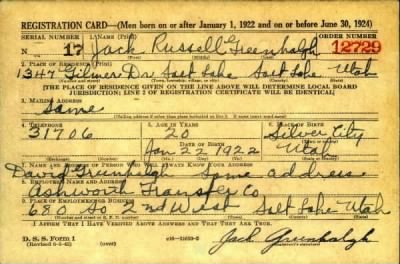 REGISTRATION CARD—(Men born on or after January 1, 1922 and on or before June 30, 1924)
SERIAL NUMBER 1. NAME (Print) ORDER NUMBER
N 17 Jack Russell Greenhalgh 12729
2. PLACE OF RESIDENCE (Print)
1347 Gilmer Dr Salt Lake Salt Lake Utah
[THE PLACE OF RESIDENCE GIVEN ON THE LINE ABOVE WILL DETERMINE LOCAL BOARD
JURISDICTION; LINE 2 OF REGISTRATION CERTIFICATE WILL BE IDENTICAL]
3. MAILING ADDRESS
Same
4. TELEPHONE 5. AGE IN YEARS
31706 20 Silver City
DATE OF BIRTH
Jan 22 1922 Utah
7. NAME AND ADDRESS OF PERSON WHO WILL ALWAYS KNOW YOUR ADDRESS
David Greenhalgh Same address
8. EMPLOYER'S NAME AND ADDRESS
Ashworth Transfer Co
9. PLACE OF EMPLOYMENT OR BUSINESS
680 So 2nd West Salt Lake Utah
I AFFIRM THAT I HAVE VERIFIED ABOVE ANSWERS AND THAT THEY ARE TRUE.
D. S. S. Form 1
Jack Greenhalgh